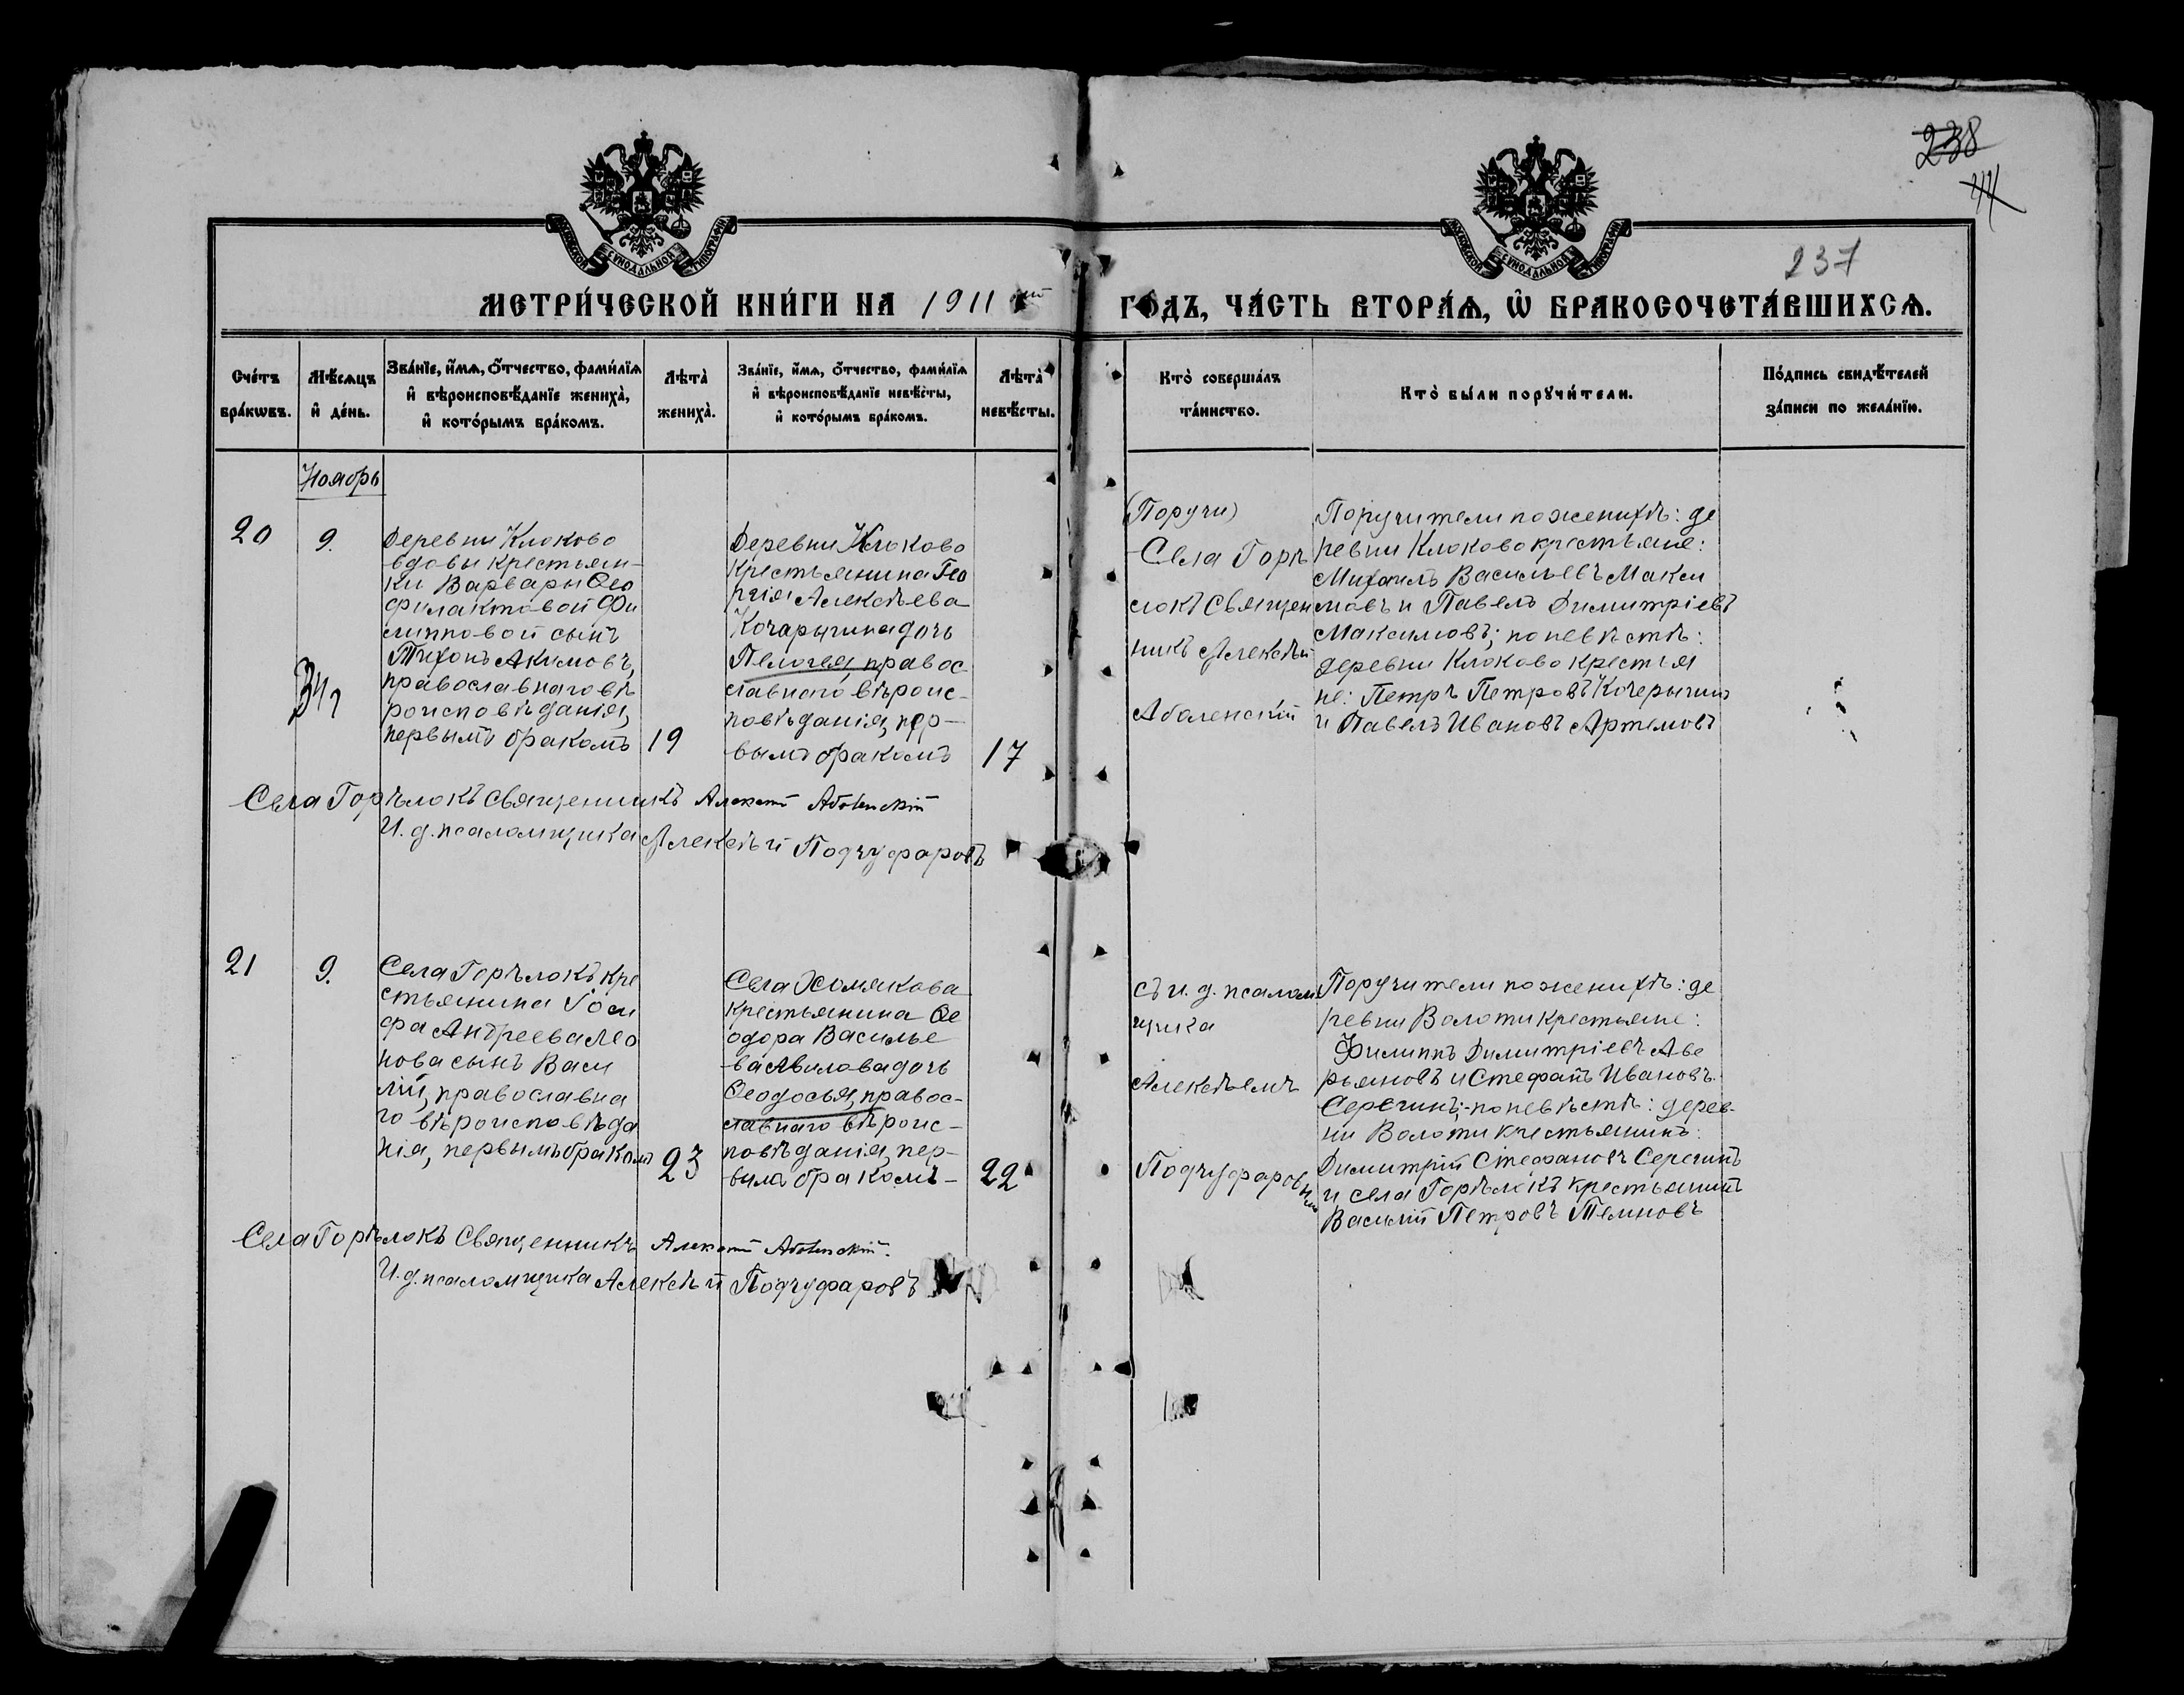 238
44
237
МОСКОВСКОЙ СѴНОДАЛЬНОЙ ТИПОГРАФІИ
МОСКОВСКОЙ СѴНОДАЛЬНОЙ ТИПОГРАФІИ
МЕТРИ́ЧЕСКОЙ КНИ́ГИ НА 1911 ГО́ДЪ, ЧА́СТЬ ВТОРА́Ѧ, Ѡ҆ БРАКОСОЧЕТА́ВШИХСѦ.
Сче́тъ
бра́кѡвъ.
Мѣ́сѧцъ
и҆ де́нь.
Зва́нїе, и҆́мѧ, ѻ҆́тчество, фами́лїѧ
и҆ вѣроисповѣ́данїе женихà,
и҆ кото́рымъ бра́комъ.
Лѣтà
женихà.
Зва́нїе, и҆́мѧ, ѻ҆́тчество, фами́лїѧ
и҆ вѣроисповѣ́данїе невѣ́сты,
и҆ кото́рымъ бра́комъ.
Лѣтà
невѣ́сты.
Кто̀ соверша́лъ
та́инство.
Кто̀ бы́ли порꙋчи́тели.
По́дпись свидѣ́телей
за́писи по жела́нїю.
Ноябрь
20
9.
Деревни Клоково
вдовы крестьян-
ки Варвары Ѳео
филактовой Фи
липповой сынъ
Тихонъ Акимовъ,
православнаго вѣ
роисповѣданія,
первымъ бракомъ
19
Деревни Клоково
крестьянина Гео
ргія Алексѣева
Кочарыгина дочь
Пелагея, правос-
славнаго вѣроис-
повѣданія, пер-
вымъ бракомъ
17
(Поручи)
Села Горѣ
локъ Священ
никъ Алексѣй
Аболенскій
Поручители по женихѣ: де
ревни Клоково крестьяне:
Михаилъ Васильевъ Макси
мовъ и Павелъ Димитріевъ
Максимовъ; по невѣстѣ:
деревни Клоково крестья
не: Петръ Петровъ Кочерыгинъ
и Павелъ Ивановъ Артемовъ
Села Горѣлокъ Священникъ Алексѣй Аболенскій
И. д. псаломщика Алексѣй Подчуфаровъ
21
9.
Села Горѣлокъ кре
стьянина Іоси
фа Андреева Лео
нова сынъ Васи
лій, православна
го вѣроисповѣда
нія, первымъ бракомъ
23
Села Хомякова
крестьянина Ѳе
одора Василье
ва Авилова дочь
Ѳеодосья, правос-
славнаго вѣроис-
повѣданія, пер-
вымъ бракомъ-
22
съ и. д. псалом
щика
Алексѣемъ
Подчуфаровымъ
Поручители по женихѣ: де
ревни Волоти крестьяне:
Филиппъ Димитріевъ Аве
рьяновъ и Стефанъ Ивановъ
Серегинъ;-по невѣстѣ: дерев-
ни Волоти крестьянинъ:
Димитрій Стефановъ Серегинъ
и села Горѣлокъ крестьянинъ
Василій Петровъ Темновъ
Села Горѣлокъ Священникъ Алексѣй Аболенскій.
И. д. псаломщика Алексѣй Подчуфаровъ